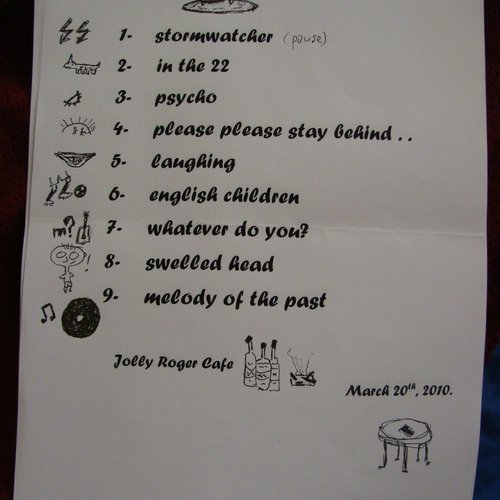 1- stormwatcher (pause)
2- in the 22
3- psycho
4- please please stay behind . .
5- laughing
6- english children
m? 7- whatever do you?
8- swelled head
9- melody of the past
Jolly Roger Cafe
March 20th, 2010.